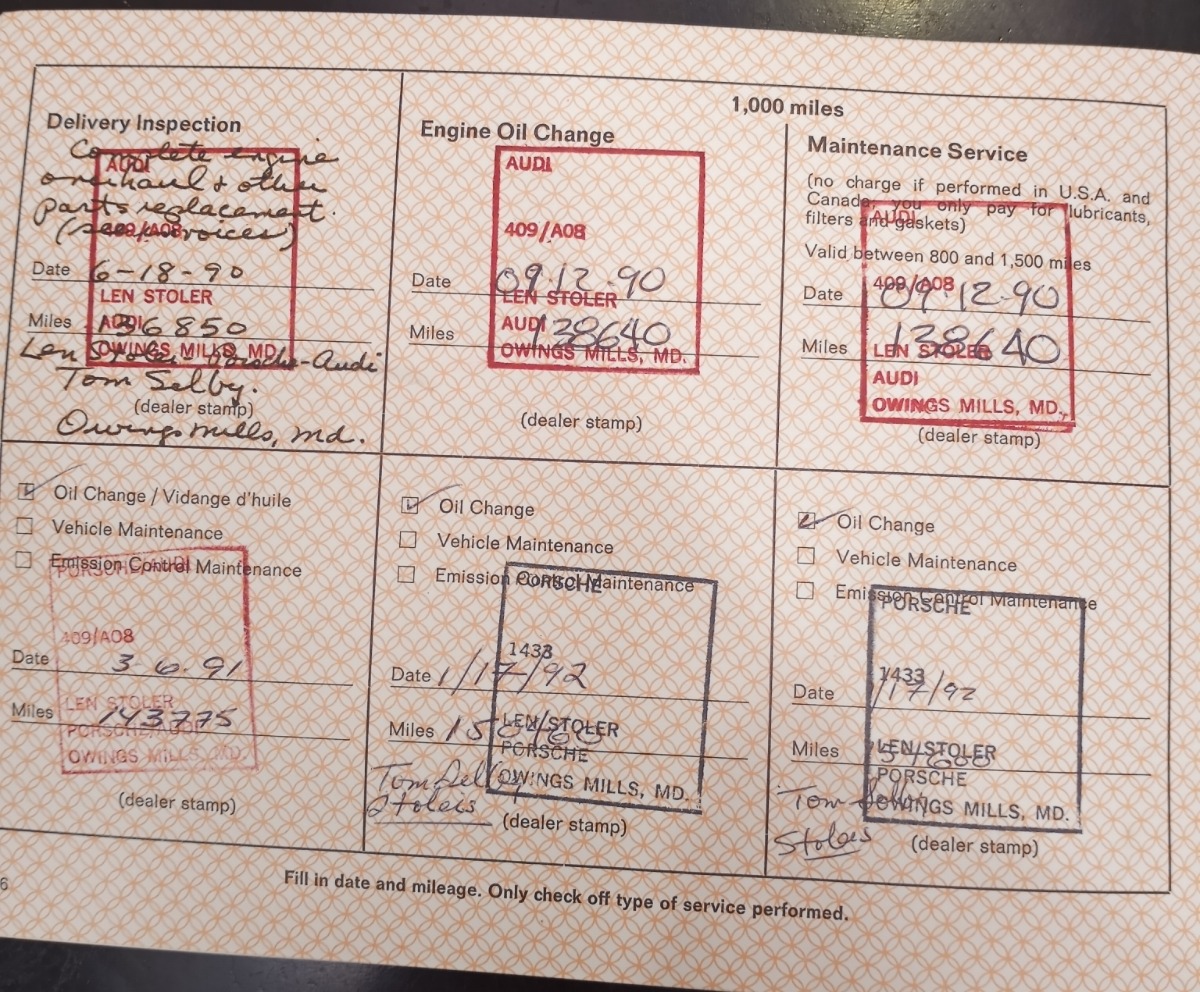 1,000 miles
Delivery Inspection
Complete engine
overhaul & other
parts replacement.
(see invoices)
AUDI
409/A08
Date 6-18-90
LEN STOLER
Miles 136850
AUDI
OWINGS MILLS, MD.
Len Stoler Porsche-Audi
Tom Selby.
(dealer stamp)
Owings Mills, Md.
Engine Oil Change
AUDI
409/A08
Date 09.12.90
LEN STOLER
Miles 138640
AUDI
OWINGS MILLS, MD.
(dealer stamp)
Maintenance Service
(no charge if performed in U.S.A. and
Canada, you only pay for lubricants,
filters and gaskets)
AUDI
Valid between 800 and 1,500 miles
409/A08
Date 09.12.90
Miles 138640
LEN STOLER
AUDI
OWINGS MILLS, MD.
(dealer stamp)
Oil Change / Vidange d'huile
Vehicle Maintenance
Emission Control Maintenance
PORSCHE/AUDI
409/A08
Date 3.6.91
LEN STOLER
Miles 143775
PORSCHE/AUDI
OWINGS MILLS, MD.
(dealer stamp)
Oil Change
Vehicle Maintenance
Emission Control Maintenance
PORSCHE
1433
Date 1/17/92
Miles
LEN STOLER
PORSCHE
Tom Selby
OWINGS MILLS, MD.
Stolers
(dealer stamp)
Oil Change
Vehicle Maintenance
Emission Control Maintenance
PORSCHE
1433
Date 1/17/92
Miles
LEN STOLER
PORSCHE
Tom Selby
OWINGS MILLS, MD.
Stolers
(dealer stamp)
6
Fill in date and mileage. Only check off type of service performed.